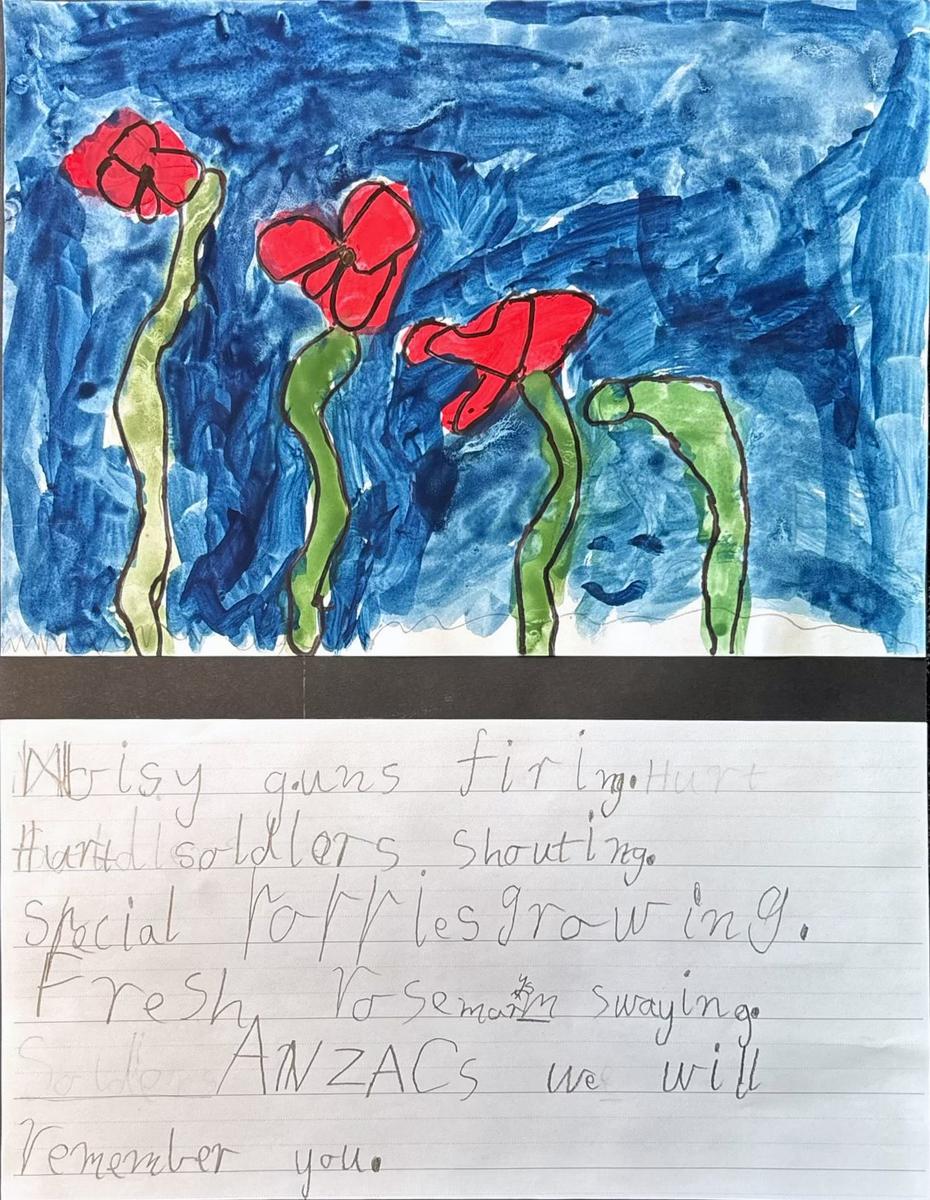 Noisy guns firing. Hurt
Hurt soldlers shouting.
Special Poppies growing.
Fresh rosemary swaying.
Soldlers ANZACs we will
remember you.